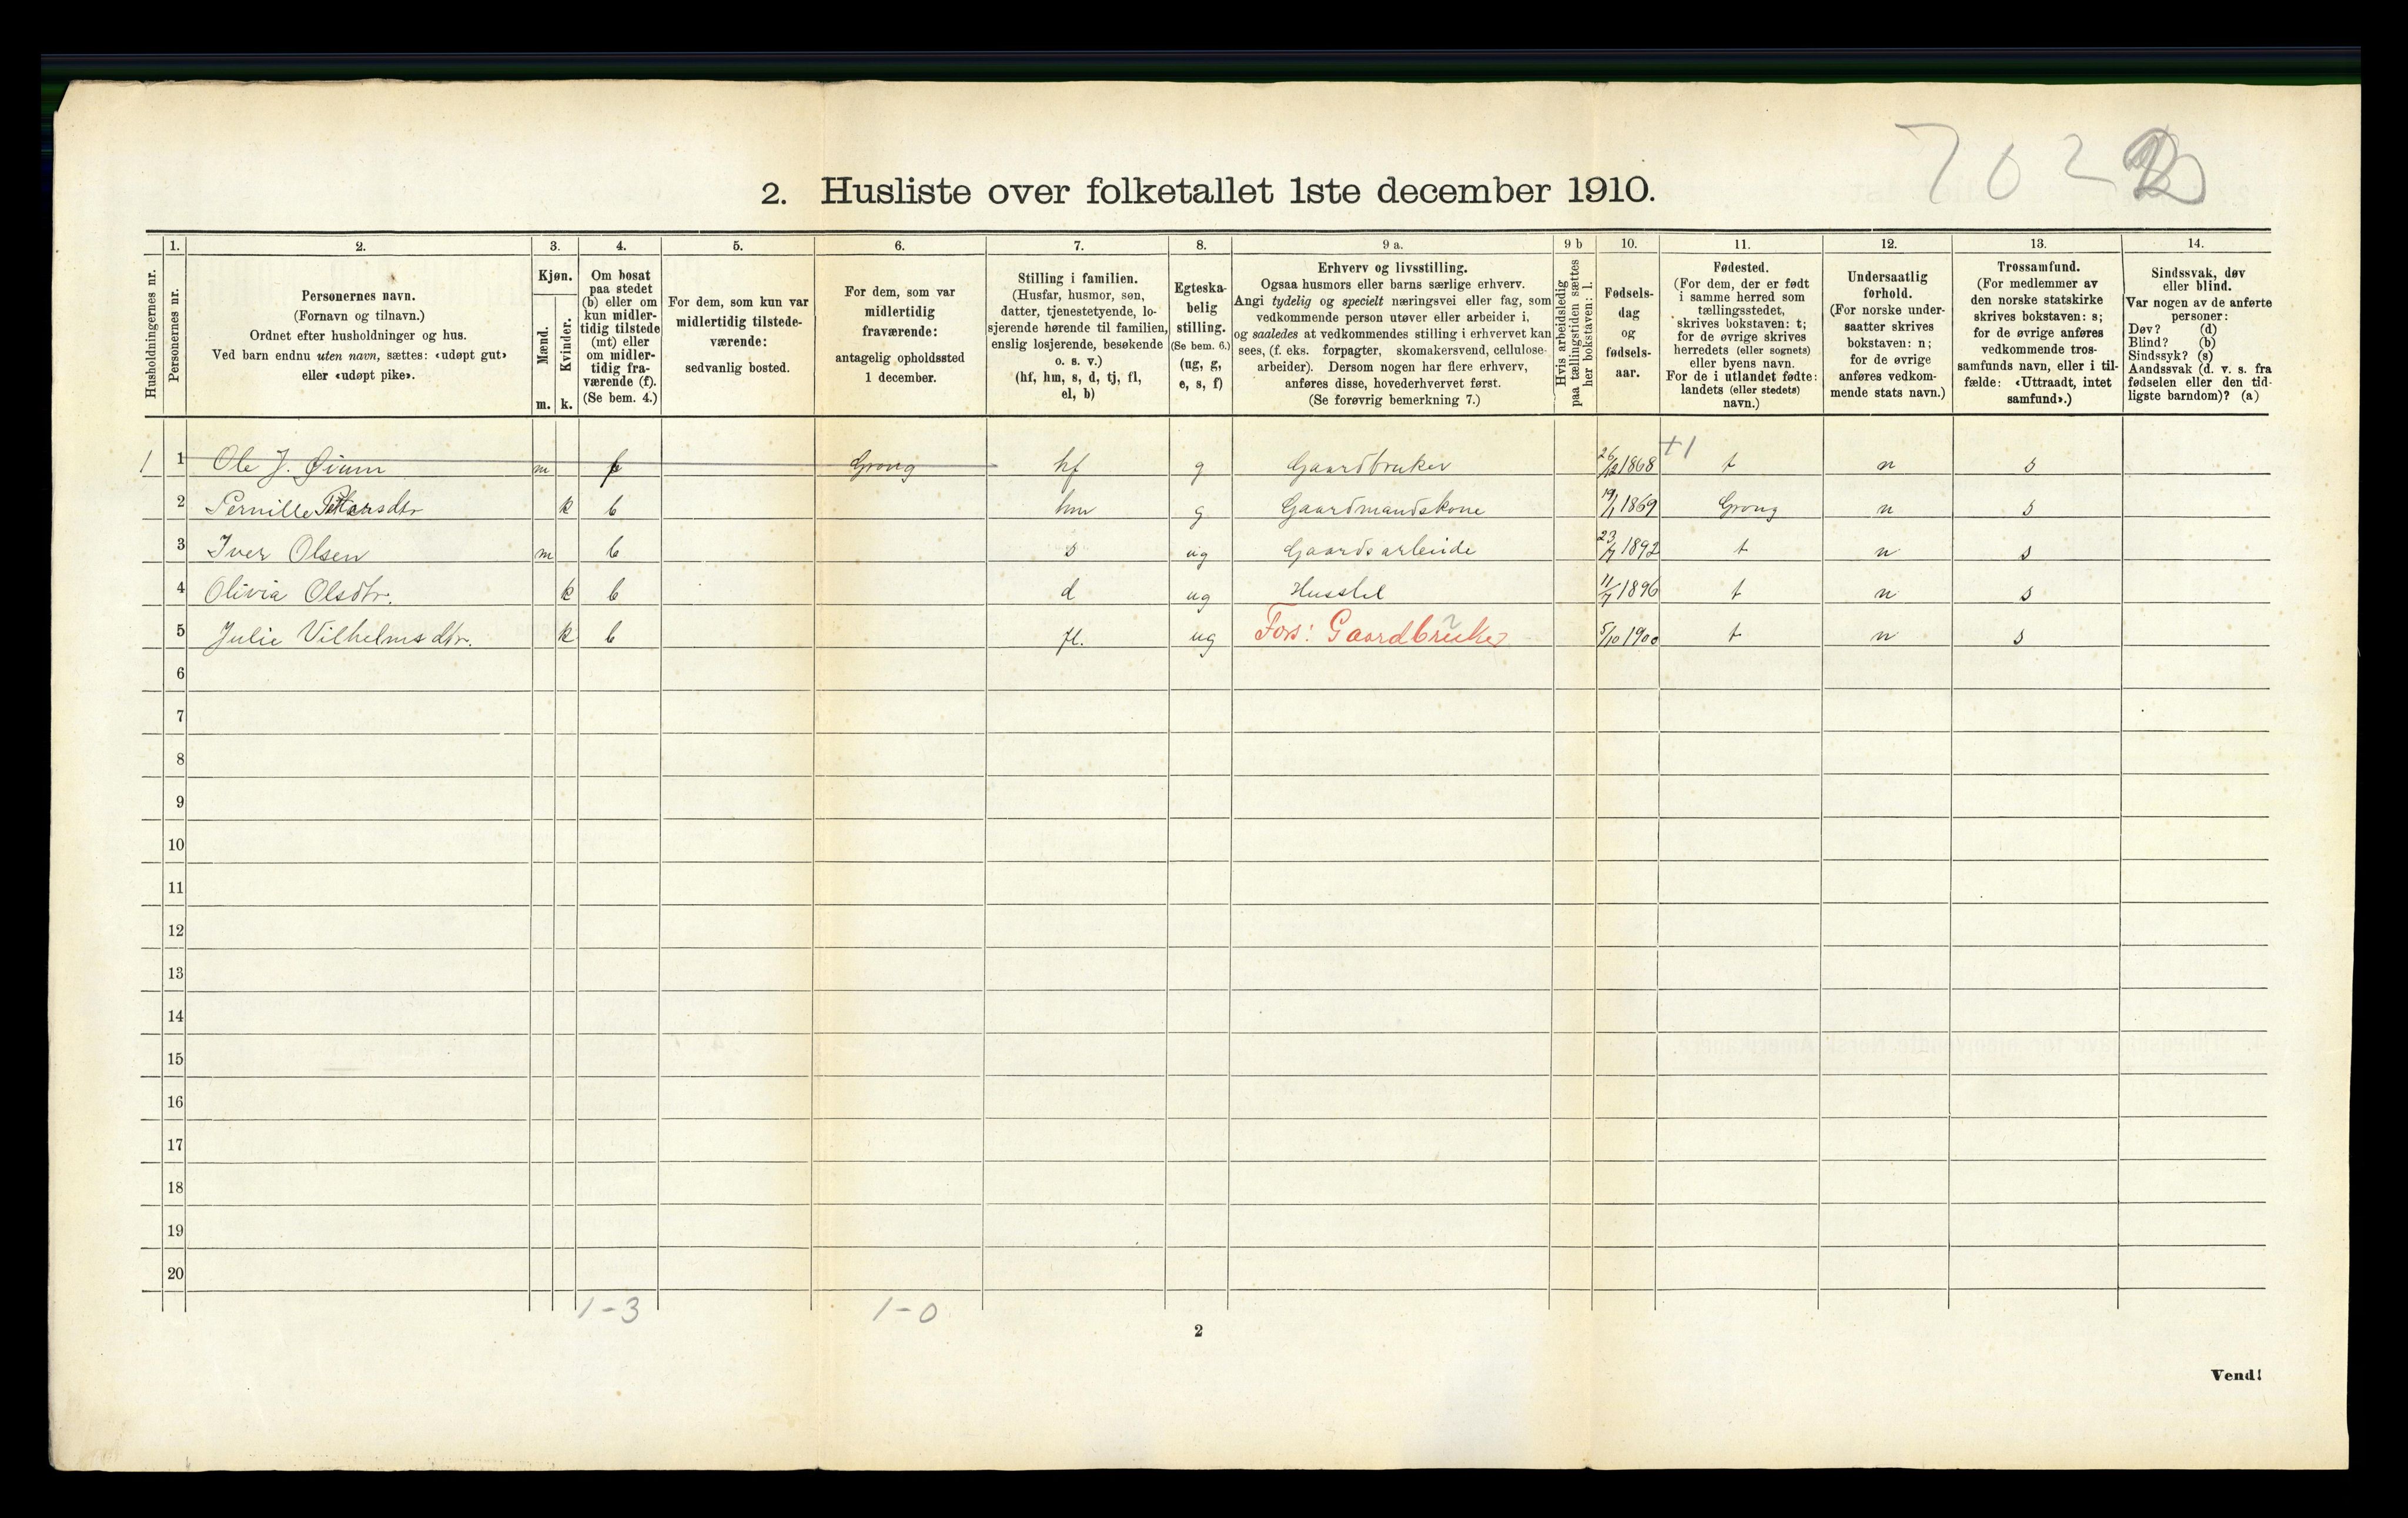 702
2. Husliste over folketallet 1ste december 1910.
1. 2. 3. 4. 5. 6. 7. 8. 9 a. 9 b 10. 11. 12. 13. 14.
Husholdningernes nr.
Personernes nr.
Personernes navn.
(Fornavn og tilnavn.)
Ordnet efter husholdninger og hus.
Ved barn endnu uten navn, sættes: «udøpt gut»
eller «udøpt pike».
Kjøn.
Mænd.
Kvinder.
m. k.
Om bosat
paa stedet
(b) eller om
kun midler-
tidig tilstede
(mt) eller
om midler-
tidig fra-
værende (f).
(Se bem. 4.)
For dem, som kun var
midlertidig tilstede-
værende:
sedvanlig bosted.
For dem, som var
midlertidig
fraværende:
antagelig opholdssted
1 december.
Stilling i familien.
(Husfar, husmor, søn,
datter, tjenestetyende, lo-
sjerende hørende til familien,
enslig losjerende, besøkende
o. s. v.)
(hf, hm, s, d, tj, fl,
el, b)
Egteska-
belig
stilling.
(Se bem. 6.)
(ug, g,
e, s, f)
Erhverv og livsstilling.
Ogsaa husmors eller barns særlige erhverv.
Angi tydelig og specielt næringsvei eller fag, som
vedkommende person utøver eller arbeider i,
og saaledes at vedkommendes stilling i erhvervet kan
sees, (f. eks. forpagter, skomakersvend, cellulose-
arbeider). Dersom nogen har flere erhverv,
anføres disse, hovederhvervet først.
(Se forøvrig bemerkning 7.)
Hvis arbeidsledig
paa tællingstiden sættes
her bokstaven: l.
Fødsels-
dag
og
fødsels-
aar.
Fødested.
(For dem, der er født
i samme herred som
tællingsstedet,
skrives bokstaven: t;
for de øvrige skrives
herredets (eller sognets)
eller byens navn.
For de i utlandet fødte:
landets (eller stedets)
navn.)
Undersaatlig
forhold.
(For norske under-
saatter skrives
bokstaven: n;
for de øvrige
anføres vedkom-
mende stats navn.)
Trossamfund.
(For medlemmer av
den norske statskirke
skrives bokstaven: s;
for de øvrige anføres
vedkommende tros-
samfunds navn, eller i til-
fælde: «Uttraadt, intet
samfund».)
Sindssvak, døv
eller blind.
Var nogen av de anførte
personer:
Døv? (d)
Blind? (b)
Sindssyk? (s)
Aandssvak (d. v. s. fra
fødselen eller den tid-
ligste barndom)? (a)
1 1 Ole J. Øium m f Grong hf g Gaardbruker 26/12 1868 +1 t n s
2 Pernille Petersdtr k b hm g Gaardmandskone 19/1 1869 Grong n s
3 Iver Olsen m b s ug Gaardsarbeide 23/7 1892 t n s
4 Olivia Olsdtr. k b d ug Husstel 11/7 1896 t n s
5 Julie Vilhelmsdtr. k b fl. ug Fors: Gaardbruker 5/10 1900 t n s
6
7
8
9
10
11
12
13
14
15
16
17
18
19
20
1-3 1-0
2
Vend!